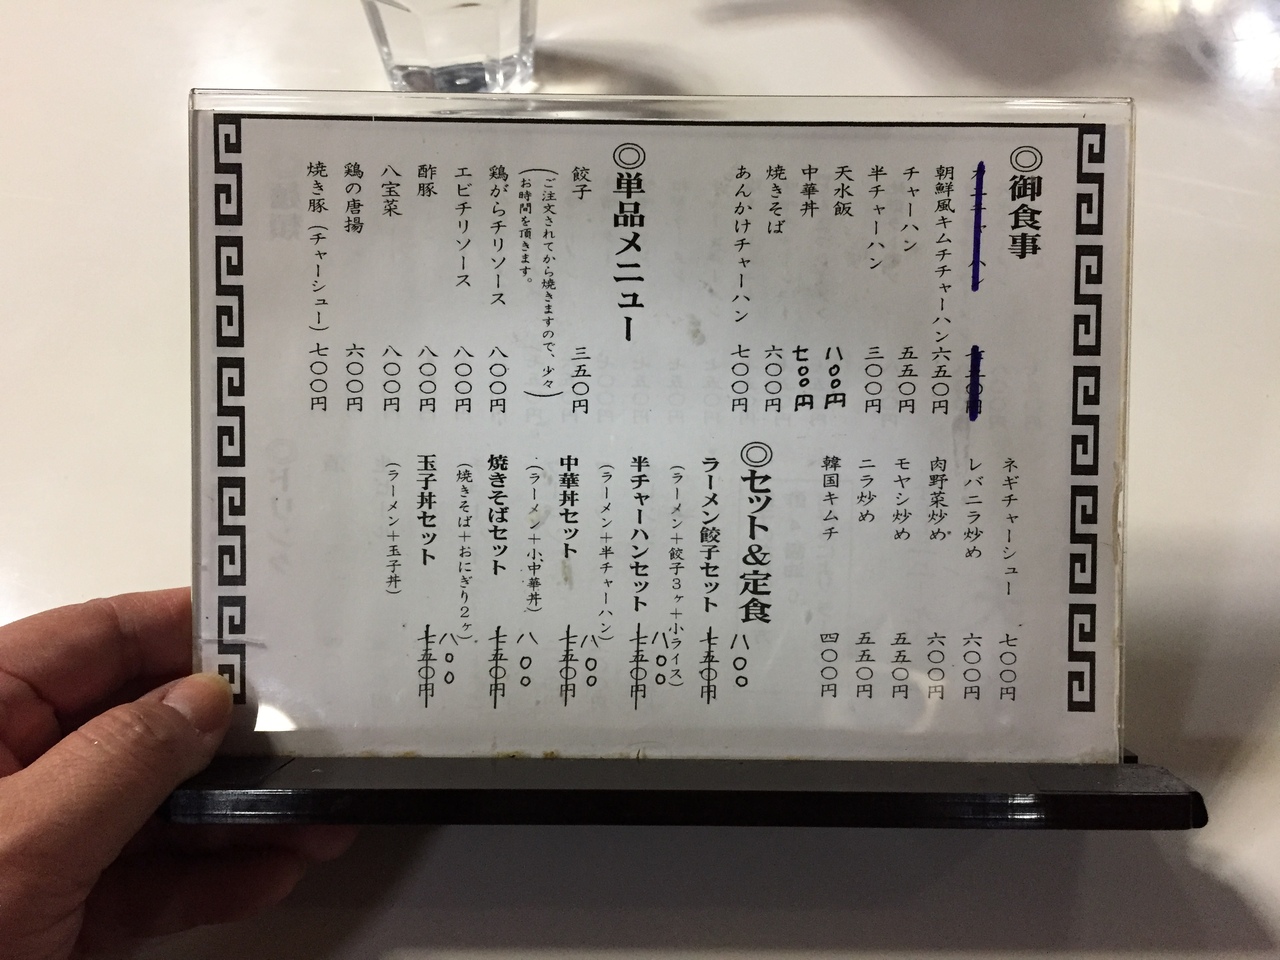 ◎御食事
朝鮮風キムチチャーハン 六五〇円
チャーハン 五五〇円
半チャーハン 三〇〇円
天水飯 八〇〇円
中華丼 七〇〇円
焼きそば 六〇〇円
あんかけチャーハン 七〇〇円
◎単品メニュー
餃子 三五〇円
(ご注文されてから焼きますので、少々
お時間を頂きます。)
鶏がらチリソース 八〇〇円
エビチリソース 八〇〇円
酢豚 八〇〇円
八宝菜 八〇〇円
鶏の唐揚 六〇〇円
焼き豚(チャーシュー) 七〇〇円
ネギチャーシュー 七〇〇円
レバニラ炒め 六〇〇円
肉野菜炒め 六〇〇円
モヤシ炒め 五五〇円
ニラ炒め 五五〇円
韓国キムチ 四〇〇円
◎セット&定食
ラーメン餃子セット 七五〇円 八〇〇
(ラーメン+餃子3ヶ+小ライス)
半チャーハンセット 七五〇円 八〇〇
(ラーメン+半チャーハン)
中華丼セット 七五〇円 八〇〇
(ラーメン+小中華丼)
焼きそばセット 七五〇円 八〇〇
(焼きそば+おにぎり2ヶ)
玉子丼セット 七五〇円 八〇〇
(ラーメン+玉子丼)